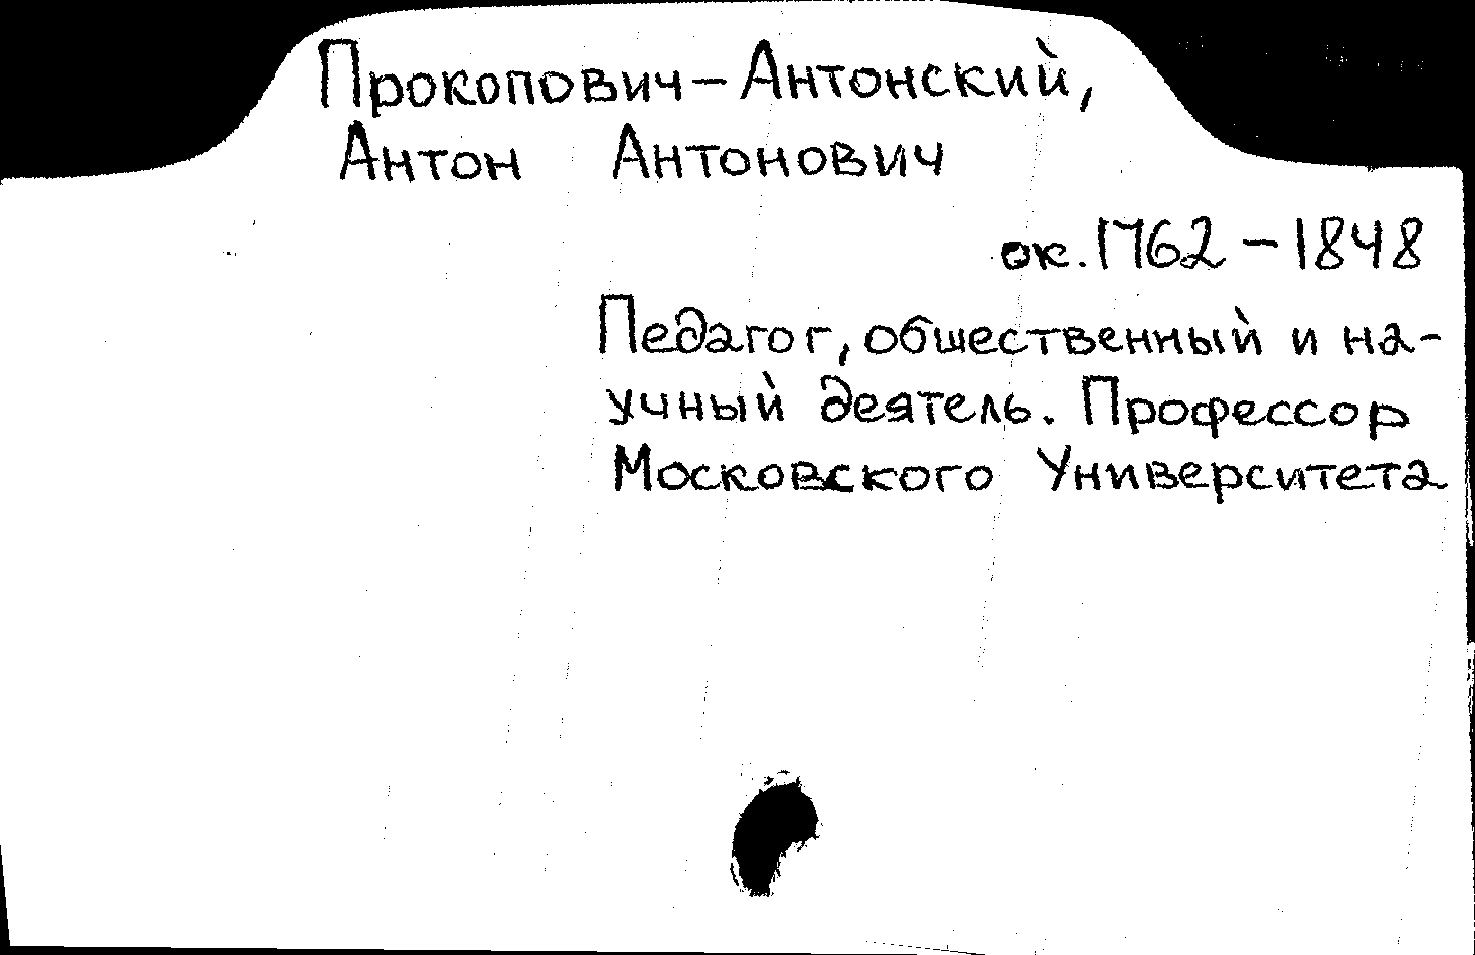 Прокопович-Антонский,
Антон Антонович
ок. 1762-1848
Педагог, общественный и на-
учный деятель. Профессор
Московского Университета